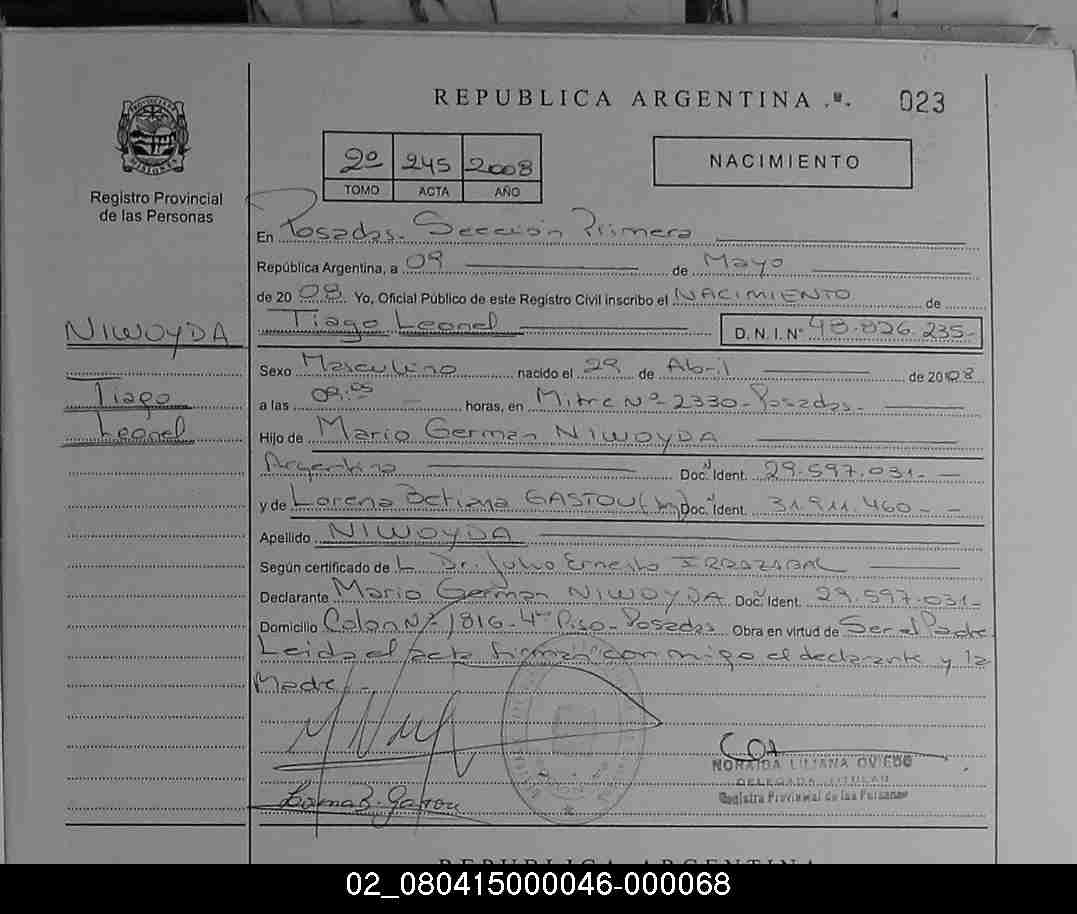 REPUBLICA ARGENTINA 023
2º 245 2008
TOMO ACTA AÑO
NACIMIENTO
PROVINCIA DE MISIONES
Registro Provincial
de las Personas
En Posadas - Sección Primera
República Argentina, a 09 de Mayo
de 2008 Yo, Oficial Público de este Registro Civil inscribo el NACIMIENTO de
Tiago Leonel D.N.I.Nº 48.826.235-
NIWOYDA
Tiago
Leonel
Sexo Masculino nacido el 29 de Abril de 2008
a las 09:05 horas, en Mitre Nº 2330 - Posadas -
Hijo de Mario German NIWOYDA
Argentino Doc. Ident. 29.597.031-
y de Lorena Betiana GASTOU Doc. Ident. 31.911.460 -
Apellido NIWOYDA
Según certificado de L Dr. Julio Ernesto IRRAZABAL
Declarante Mario German NIWOYDA Doc. Ident. 29.597.031-
Domicilio Colon Nº 1816 - 4to Piso - Posadas Obra en virtud de Ser el Padre
Leida el acta firman conmigo el declarante y la
Madre.-
NORAIDA LILIANA OVIEDO
DELEGADA TITULAR
Registro Provincial de las Personas
REPUBLICA ARGENTINA
02_080415000046-000068